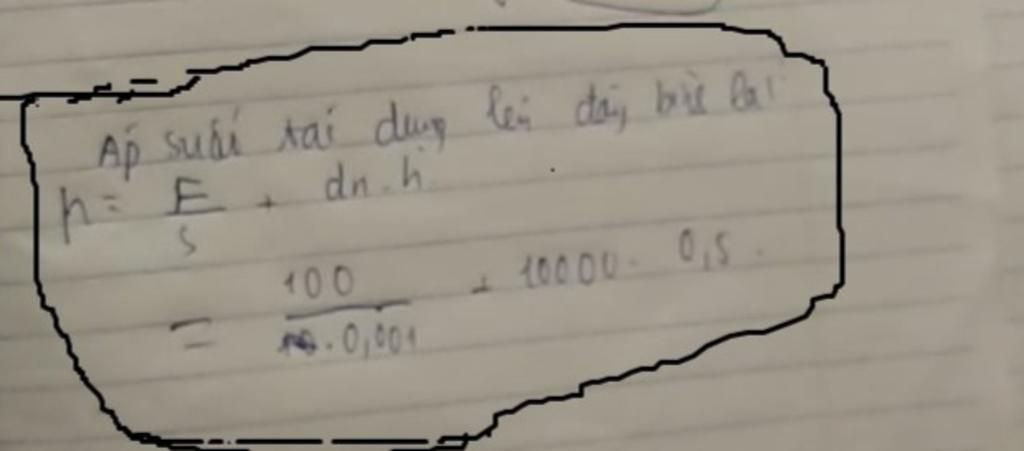 Áp suất tác dụng lên đáy bể là:
p = F/S + dn.h
= 100/0,001 + 10000. 0,5.